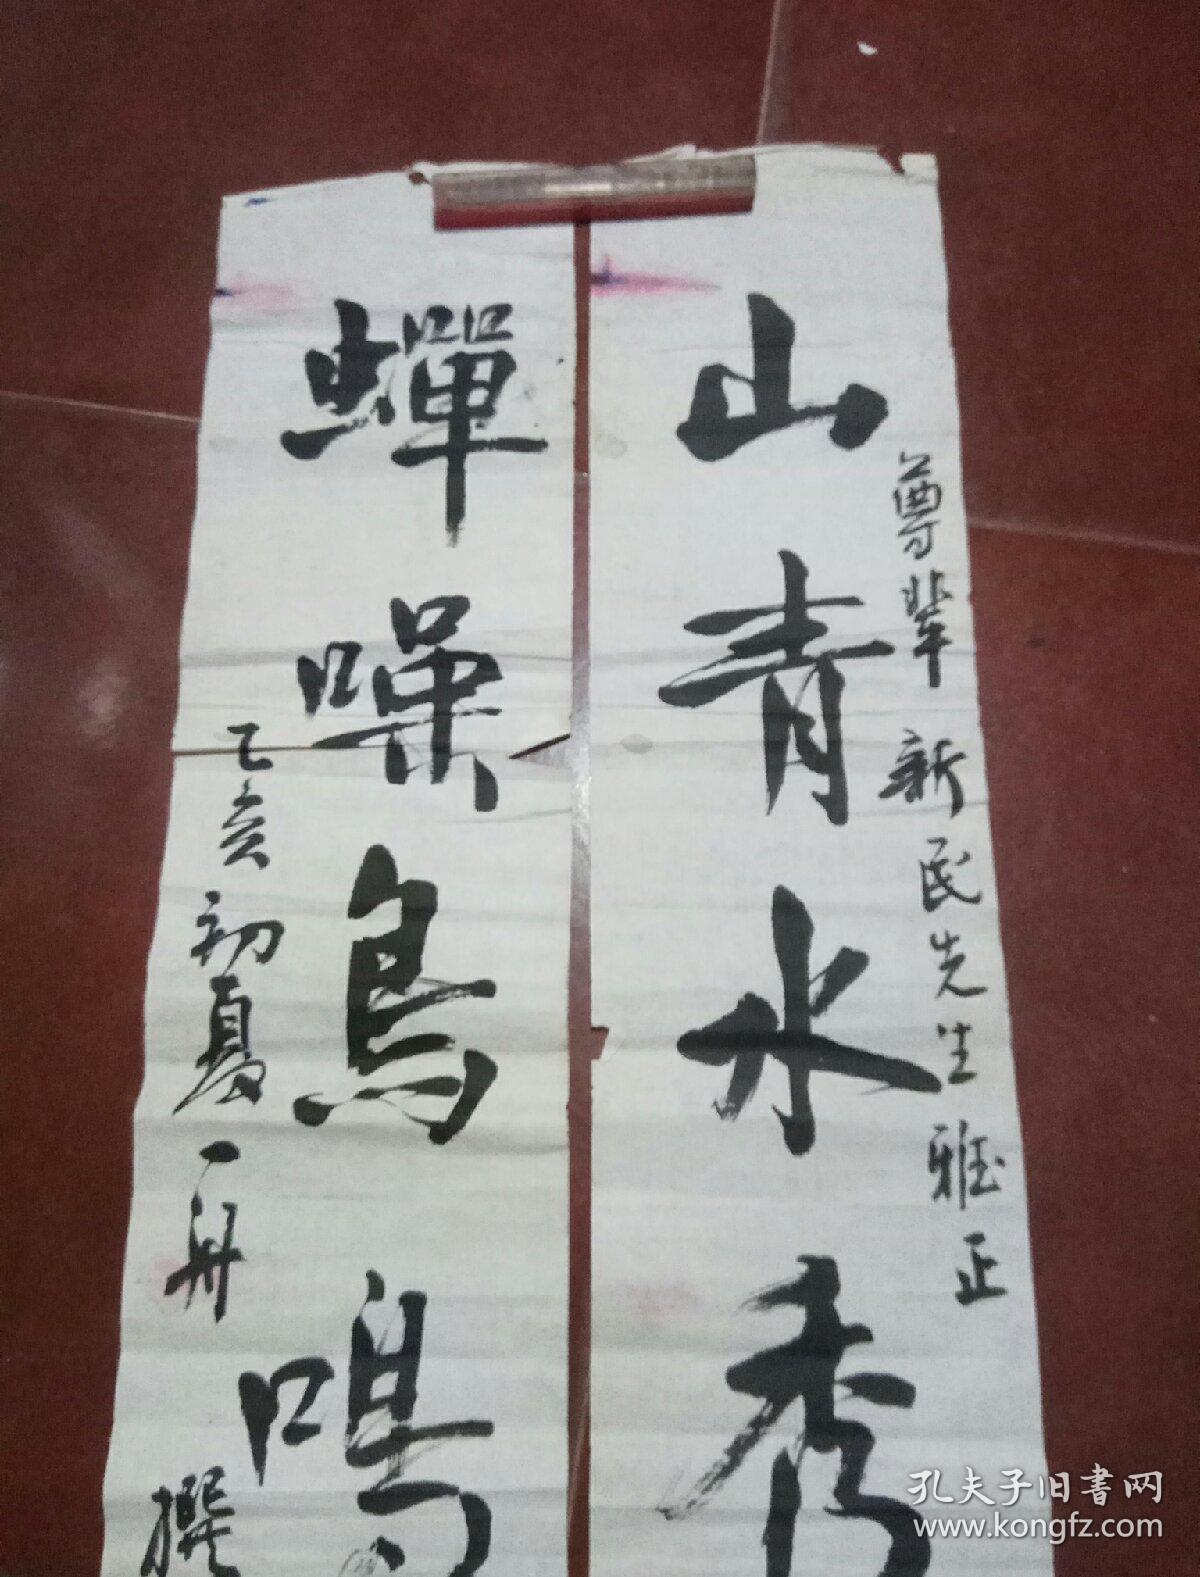 山青水秀
尊辈新民先生雅正
蟬噪鳥鳴
乙亥初夏一舟
撰
孔夫子旧书网
www.kongfz.com